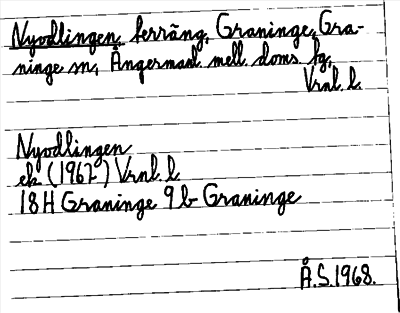 Nyodlingen, terräng, Graninge, Gra-
ninge sn, Ångermanl. mell. doms. fg,
Vrnl. l.
Nyodlingen
ek. (1967) Vrnl. l.
18H Graninge 9b Graninge
Å.S. 1968.